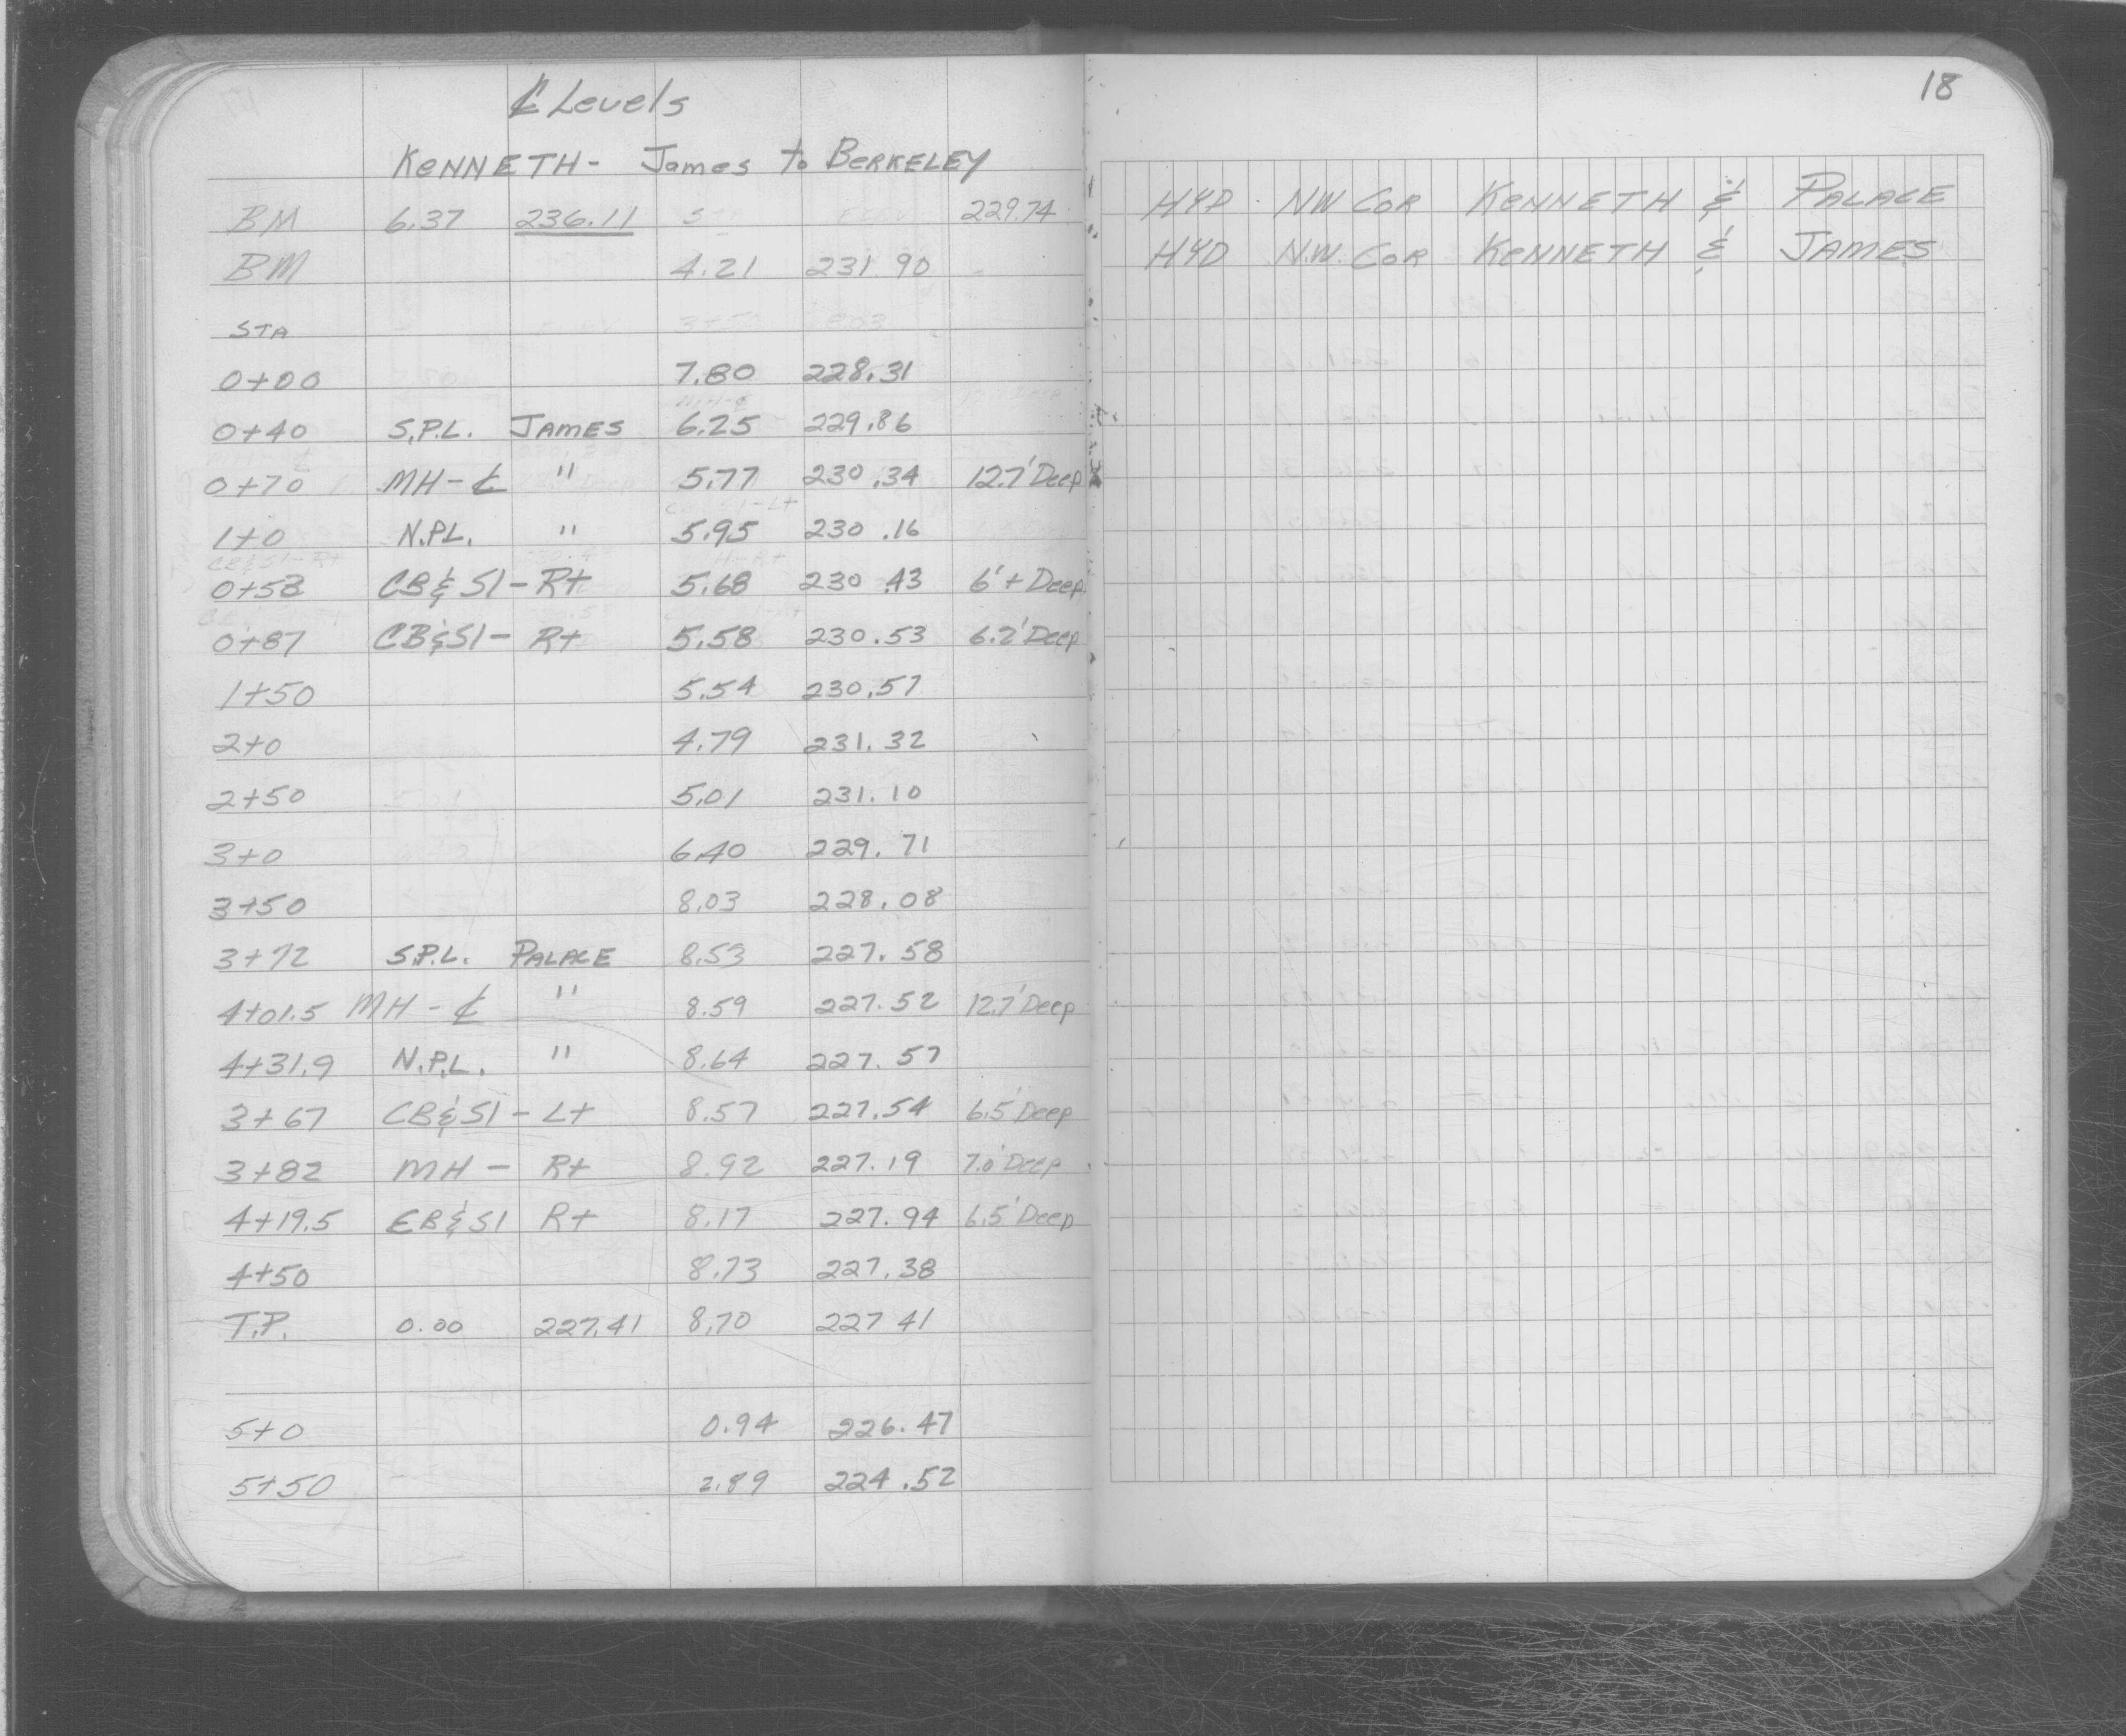 18
℄ Levels
KENNETH - James to BERKELEY
BM 6.37 236.11 229.74 HYD. NW COR KENNETH & PALACE
BM 4.21 231.90 HYD N.W. COR KENNETH & JAMES
STA
0+00 7.80 228.31
0+40 S.P.L. JAMES 6.25 229.86
0+70 MH-℄ " 5.77 230.34 12.7' Deep
1+0 N.PL. " 5.95 230.16
0+58 CB&SI-Rt 5.68 230.43 6'+ Deep
0+87 CB&SI-Rt 5.58 230.53 6.2' Deep
1+50 5.54 230.57
2+0 4.79 231.32
2+50 5.01 231.10
3+0 6.40 229.71
3+50 8.03 228.08
3+72 S.P.L. PALACE 8.53 227.58
4+01.5 MH-℄ " 8.59 227.52 12.7' Deep
4+31.9 N.P.L. " 8.64 227.57
3+67 CB&SI-Lt 8.57 227.54 6.5' Deep
3+82 MH-Rt 8.92 227.19 7.0' Deep
4+19.5 EB&SI Rt 8.17 227.94 6.5' Deep
4+50 8.73 227.38
T.P. 0.00 227.41 8.70 227 41
5+0 0.94 226.47
5+50 2.89 224.52